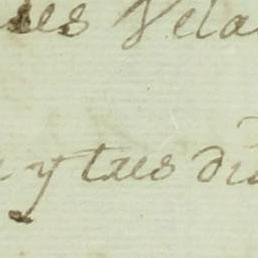 ses Vela
y tres di